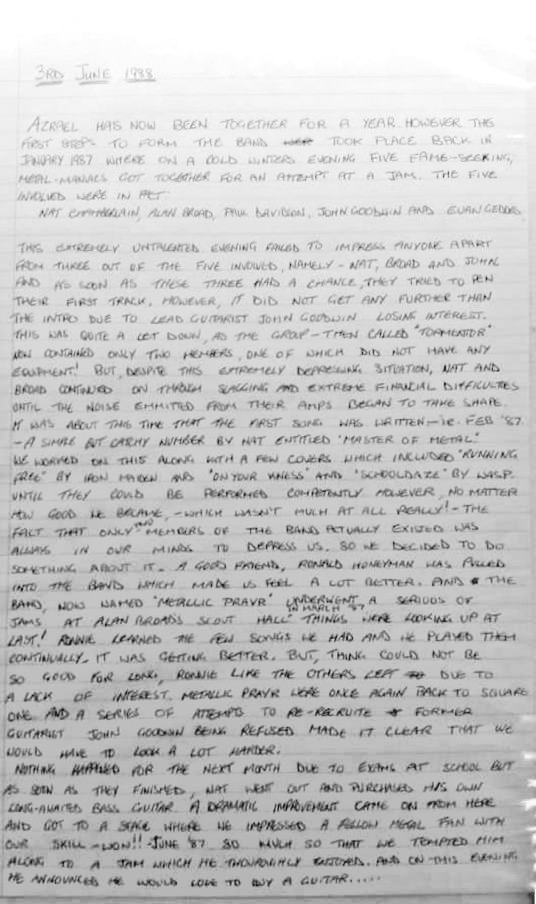 3RD JUNE 1988
AZRAEL HAS NOW BEEN TOGETHER FOR A YEAR. HOWEVER THE
FIRST STEPS TO FORM THE BAND TOOK PLACE BACK IN
JANUARY 1987 WHERE ON A COLD WINTERS EVENING FIVE FAME-SEEKING,
METAL-MANIACS GOT TOGETHER FOR AN ATTEMPT AT A JAM. THE FIVE
INVOLVED WERE IN FACT
NAT CHAMBERLAIN, ALAN BROAD, PAUL DAVIDSON, JOHN GOODWIN AND EUAN GEDDES.
THIS EXTREMELY UNTALENTED EVENING FAILED TO IMPRESS ANYONE APART
FROM THREE OUT OF THE FIVE INVOLVED, NAMELY - NAT, BROAD AND JOHN.
AND AS SOON AS THESE THREE HAD A CHANCE, THEY TRIED TO PEN
THEIR FIRST TRACK, HOWEVER, IT DID NOT GET ANY FURTHER THAN
THE INTRO DUE TO LEAD GUITARIST JOHN GOODWIN LOSING INTEREST.
THIS WAS QUITE A LET DOWN, AS THE GROUP - THEN CALLED "TORMENTOR"
NOW CONTAINED ONLY TWO MEMBERS, ONE OF WHICH DID NOT HAVE ANY
EQUIPMENT! BUT, DESPITE THIS EXTREMELY DEPRESSING SITUATION, NAT AND
BROAD CONTINUED ON THROUGH SLAGGING AND EXTREME FINANCIAL DIFFICULTIES
UNTIL THE NOISE EMMITTED FROM THEIR AMPS BEGAN TO TAKE SHAPE.
IT WAS ABOUT THIS TIME THAT THE FIRST SONG WAS WRITTEN - ie. FEB '87.
- A SIMPLE BUT CATCHY NUMBER BY NAT ENTITLED 'MASTER OF METAL.'
WE WORKED ON THIS ALONG WITH A FEW COVERS WHICH INCLUDED 'RUNNING
FREE' BY IRON MAIDEN AND 'ON YOUR KNESS' AND 'SCHOOLDAZE' BY WASP.
UNTIL THEY COULD BE PERFORMED COMPETENTLY HOWEVER, NO MATTER
HOW GOOD WE BECAME, - WHICH WASN'T MUCH AT ALL REALLY! - THE
FACT THAT ONLY TWO MEMBERS OF THE BAND ACTUALLY EXISTED WAS
ALWAYS IN OUR MINDS TO DEPRESS US. SO WE DECIDED TO DO
SOMETHING ABOUT IT. A GOOD FRIEND, RONALD HONEYMAN WAS PULLED
INTO THE BAND WHICH MADE US FEEL A LOT BETTER. AND THE
BAND, NOW NAMED "METALLIC PRAYR" UNDERWENT A SERIOUS OF
JAMS AT ALAN BROADS SCOUT HALL IN MARCH '87. THINGS WERE LOOKING UP AT
LAST! RONNIE LEARNED THE FEW SONGS WE HAD AND WE PLAYED THEM
CONTINUALLY. IT WAS GETTING BETTER. BUT, THING COULD NOT BE
SO GOOD FOR LONG, RONNIE LIKE THE OTHERS LEFT DUE TO
A LACK OF INTEREST. METALLIC PRAYR WERE ONCE AGAIN BACK TO SQUARE
ONE AND A SERIES OF ATTEMPTS TO RE-RECRUITE FORMER
GUITARIST JOHN GOODWIN BEING REFUSED MADE IT CLEAR THAT WE
WOULD HAVE TO LOOK A LOT HARDER.
NOTHING HAPPENED FOR THE NEXT MONTH DUE TO EXAMS AT SCHOOL BUT
AS SOON AS THEY FINISHED, NAT WENT OUT AND PURCHASED HIS OWN
LONG-AWAITED BASS GUITAR. A DRAMATIC IMPROVEMENT CAME ON FROM HERE
AND GOT TO A STAGE WHERE WE IMPRESSED A FELLOW METAL FAN WITH
OUR SKILL - WON!! - JUNE '87 SO MUCH SO THAT WE TEMPTED HIM
ALONG TO A JAM WHICH HE THOUROUGHLY ENJOYED. AND ON THIS EVENING
HE ANNOUNCED HE WOULD LOVE TO BUY A GUITAR.....